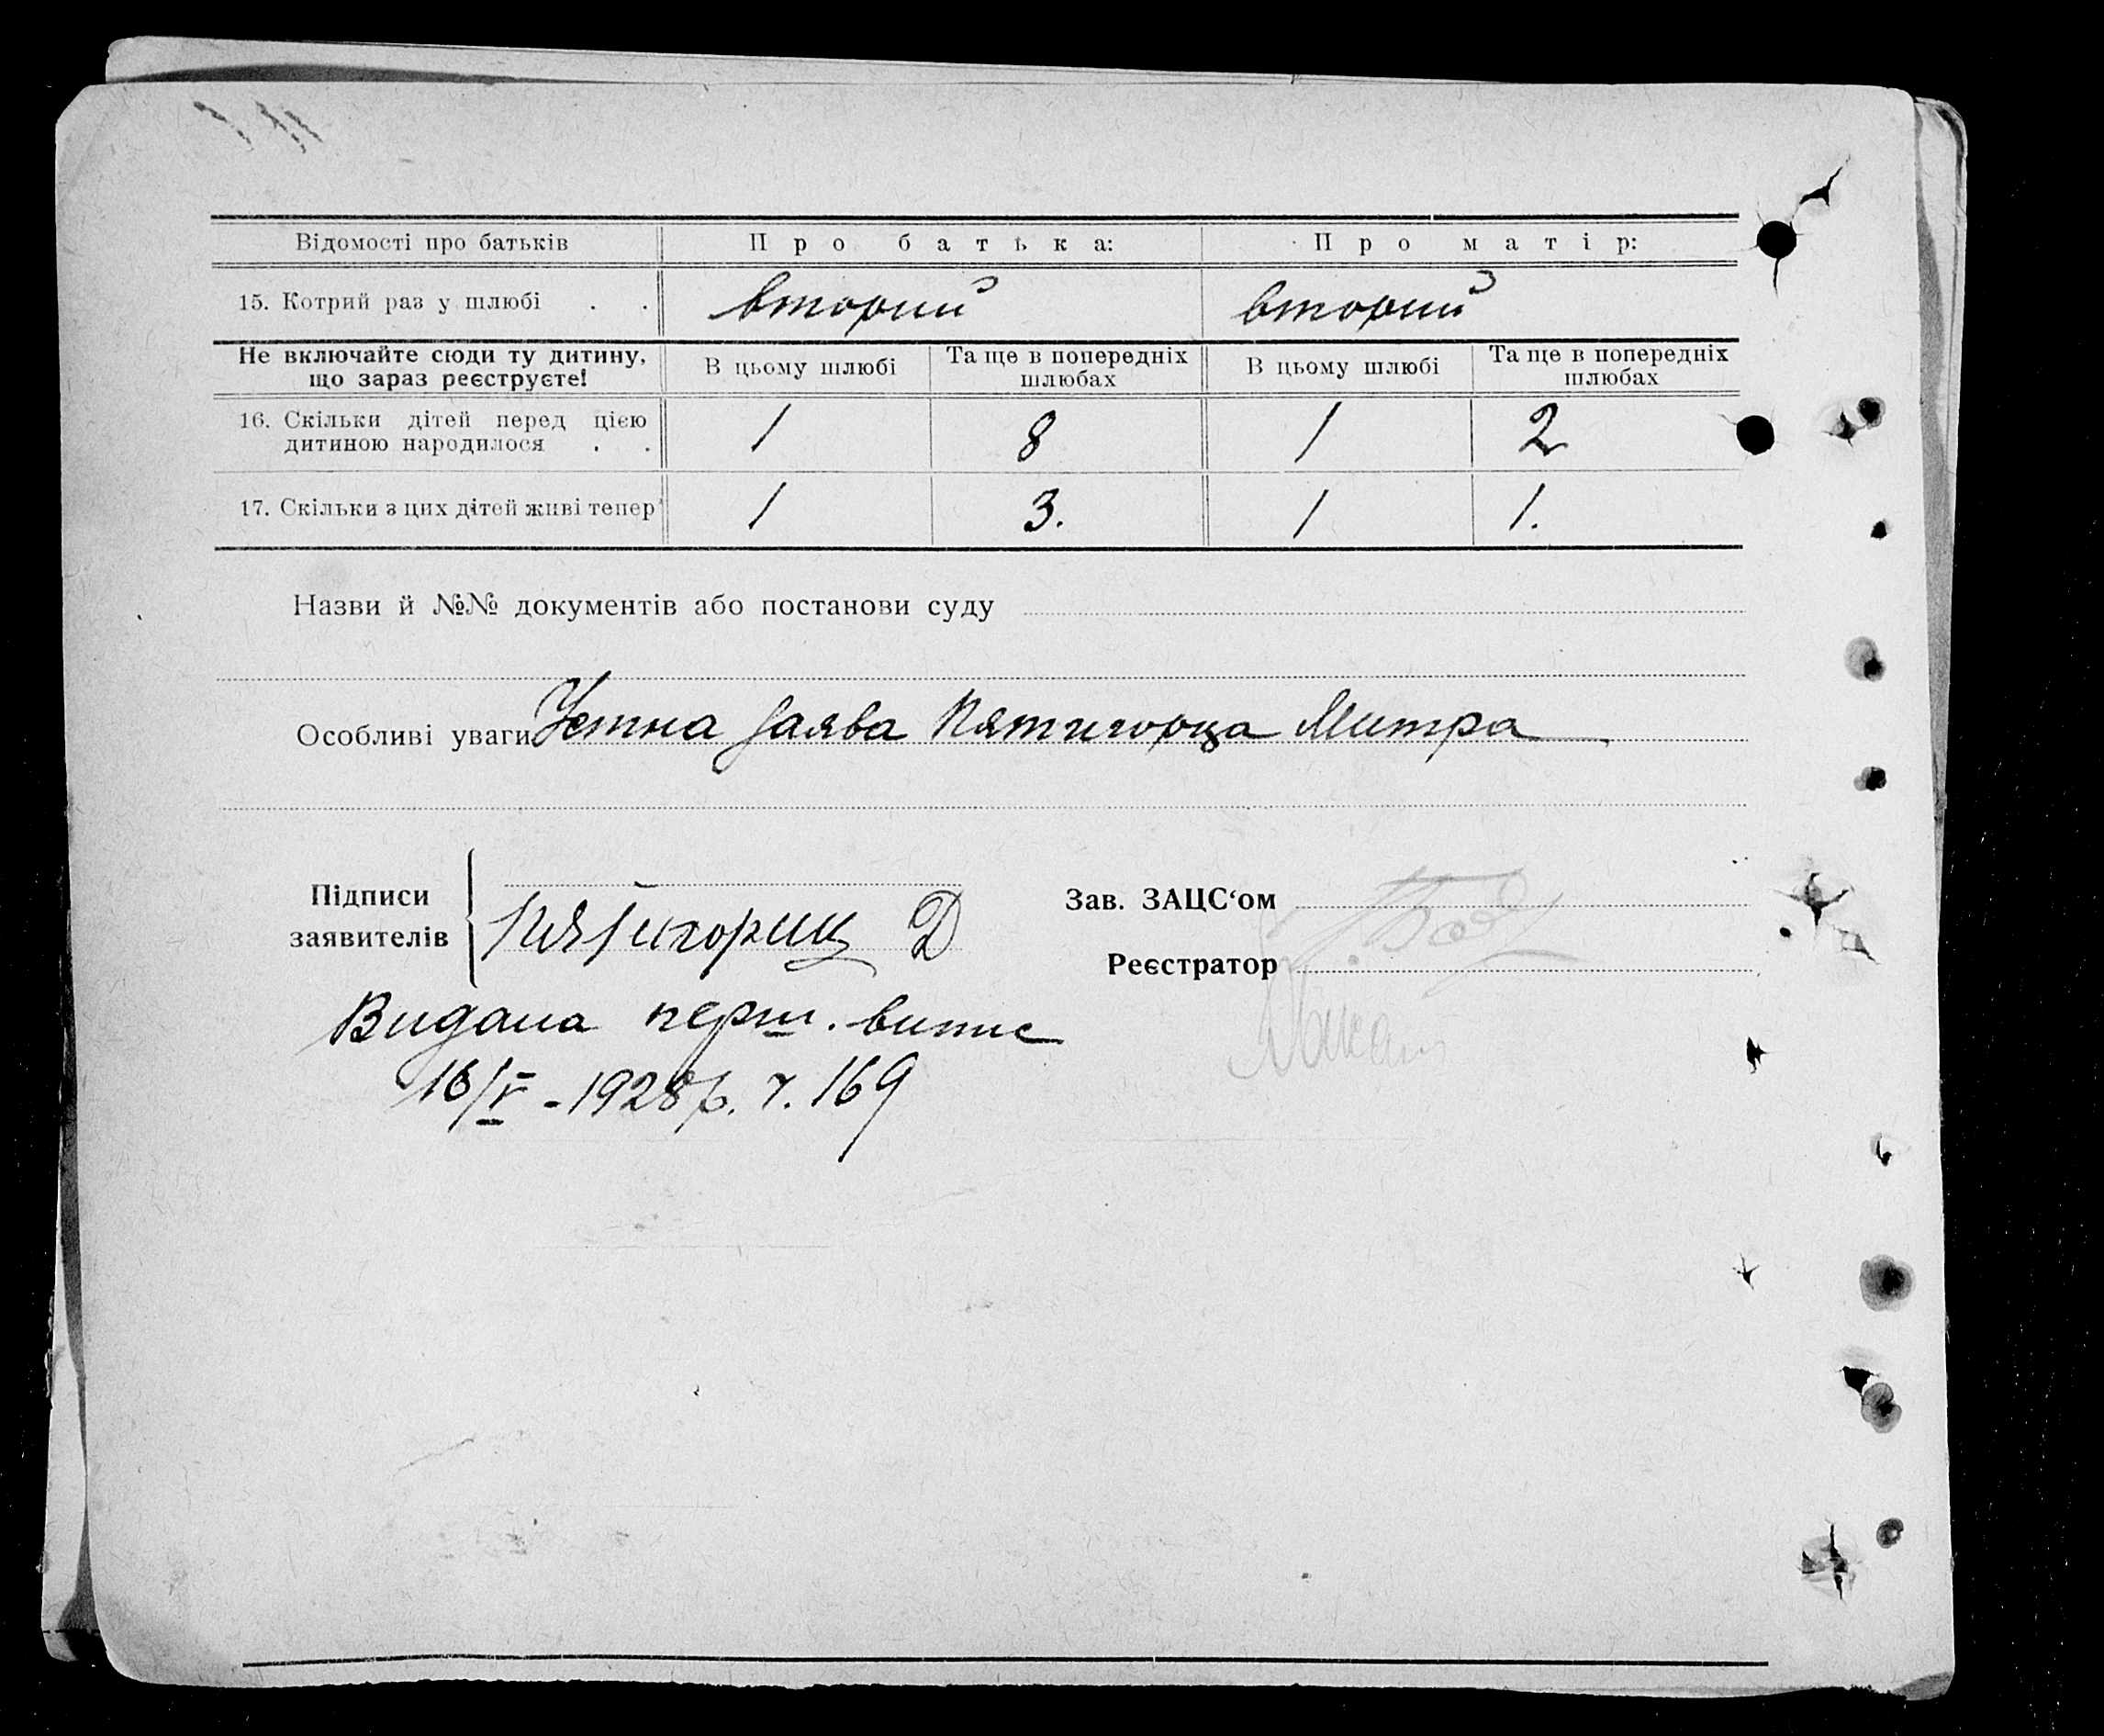 Відомості про батьків Про батька: Про матір:
15. Котрий раз у шлюбі . . вторий вторий
Не включайте сюди ту дитину, що зараз реєструєте! В цьому шлюбі Та ще в попередніх шлюбах В цьому шлюбі Та ще в попередніх шлюбах
16. Скільки дітей перед цією дитиною народилося . . 1 8 1 2
17. Скільки з цих дітей живі тепер 1 3. 1 1.
Назви й №№ документів або постанови суду
Особливі уваги Устна заява Пятигорца Митра
Підписи заявителів Пятигориц Д
Зав. ЗАЦС‘ом
Реєстратор
Видана перш. випис
16/V - 1928 р. ч. 169